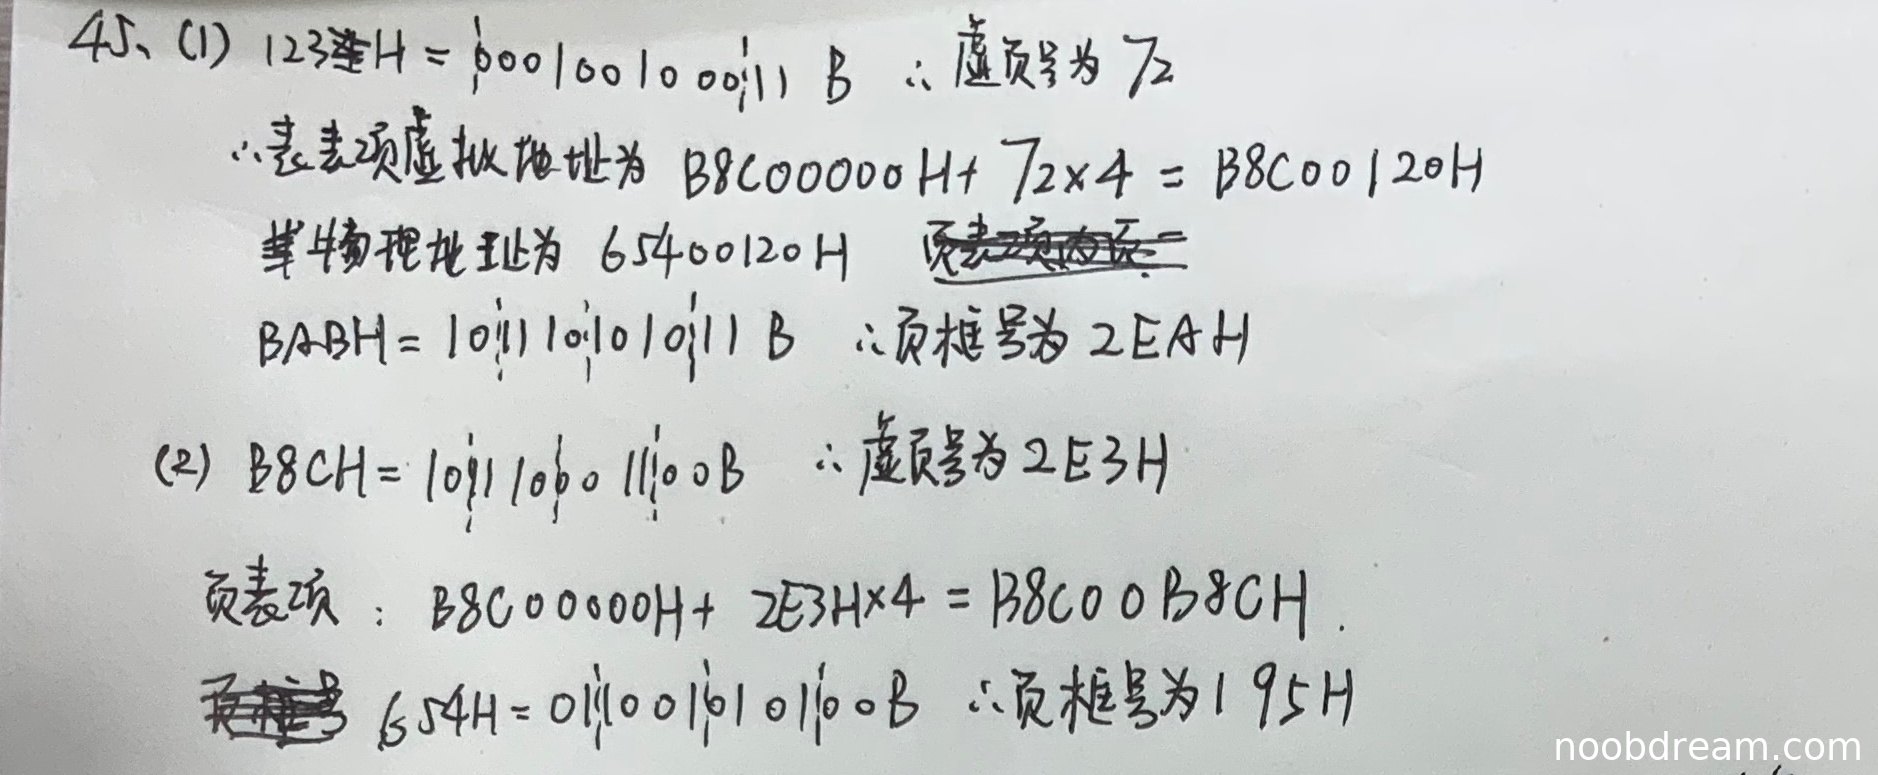 45、(1) 123H = 000100100011 B ∴虚页号为 72
∴表项虚拟地址为 B8C00000H + 72×4 = B8C00120H
物理地址为 65400120H
BABH = 101110101011 B ∴页框号为 2EAH
(2) B8CH = 101110001100B ∴虚页号为 2E3H
页表项：B8C00000H + 2E3H×4 = B8C00B8CH.
654H = 011001010100B ∴页框号为 195H
noobdream.com